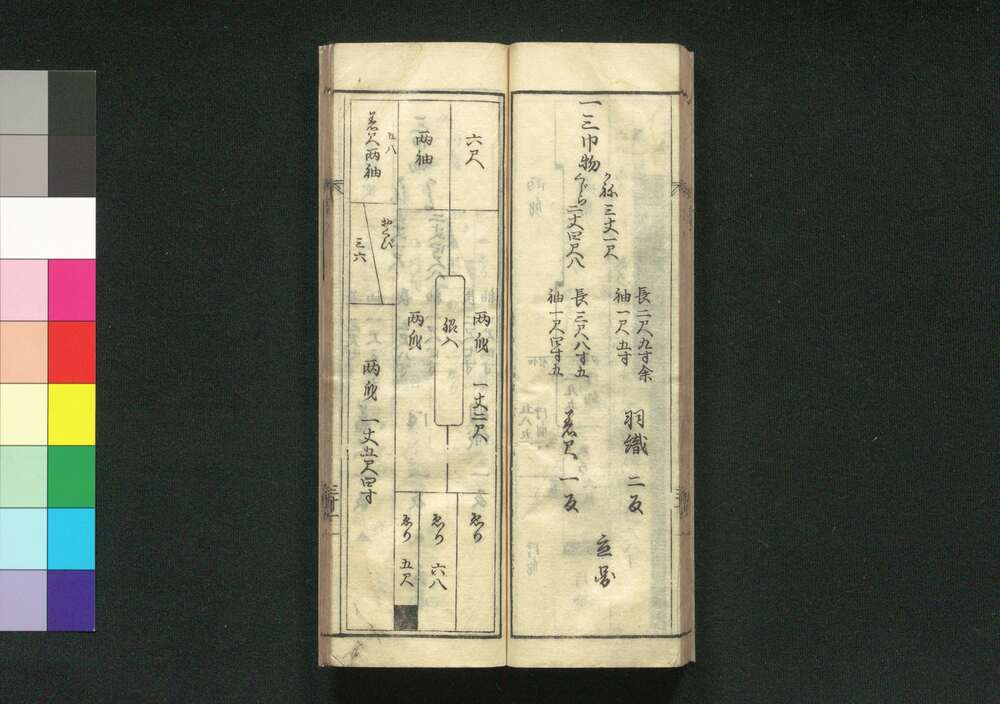 一三巾物
かね三丈一尺
くじら二丈四尺八
長二尺九寸余
袖一尺五寸
長三尺八寸五
袖一尺四寸五
羽織 二反
着尺 一反
六尺
両袖
五八
着尺両袖
おくび
三六
両身 一丈二尺
裾入
両身
両身 一丈五尺四寸
ゑり
ゑり 六八
ゑり 五尺